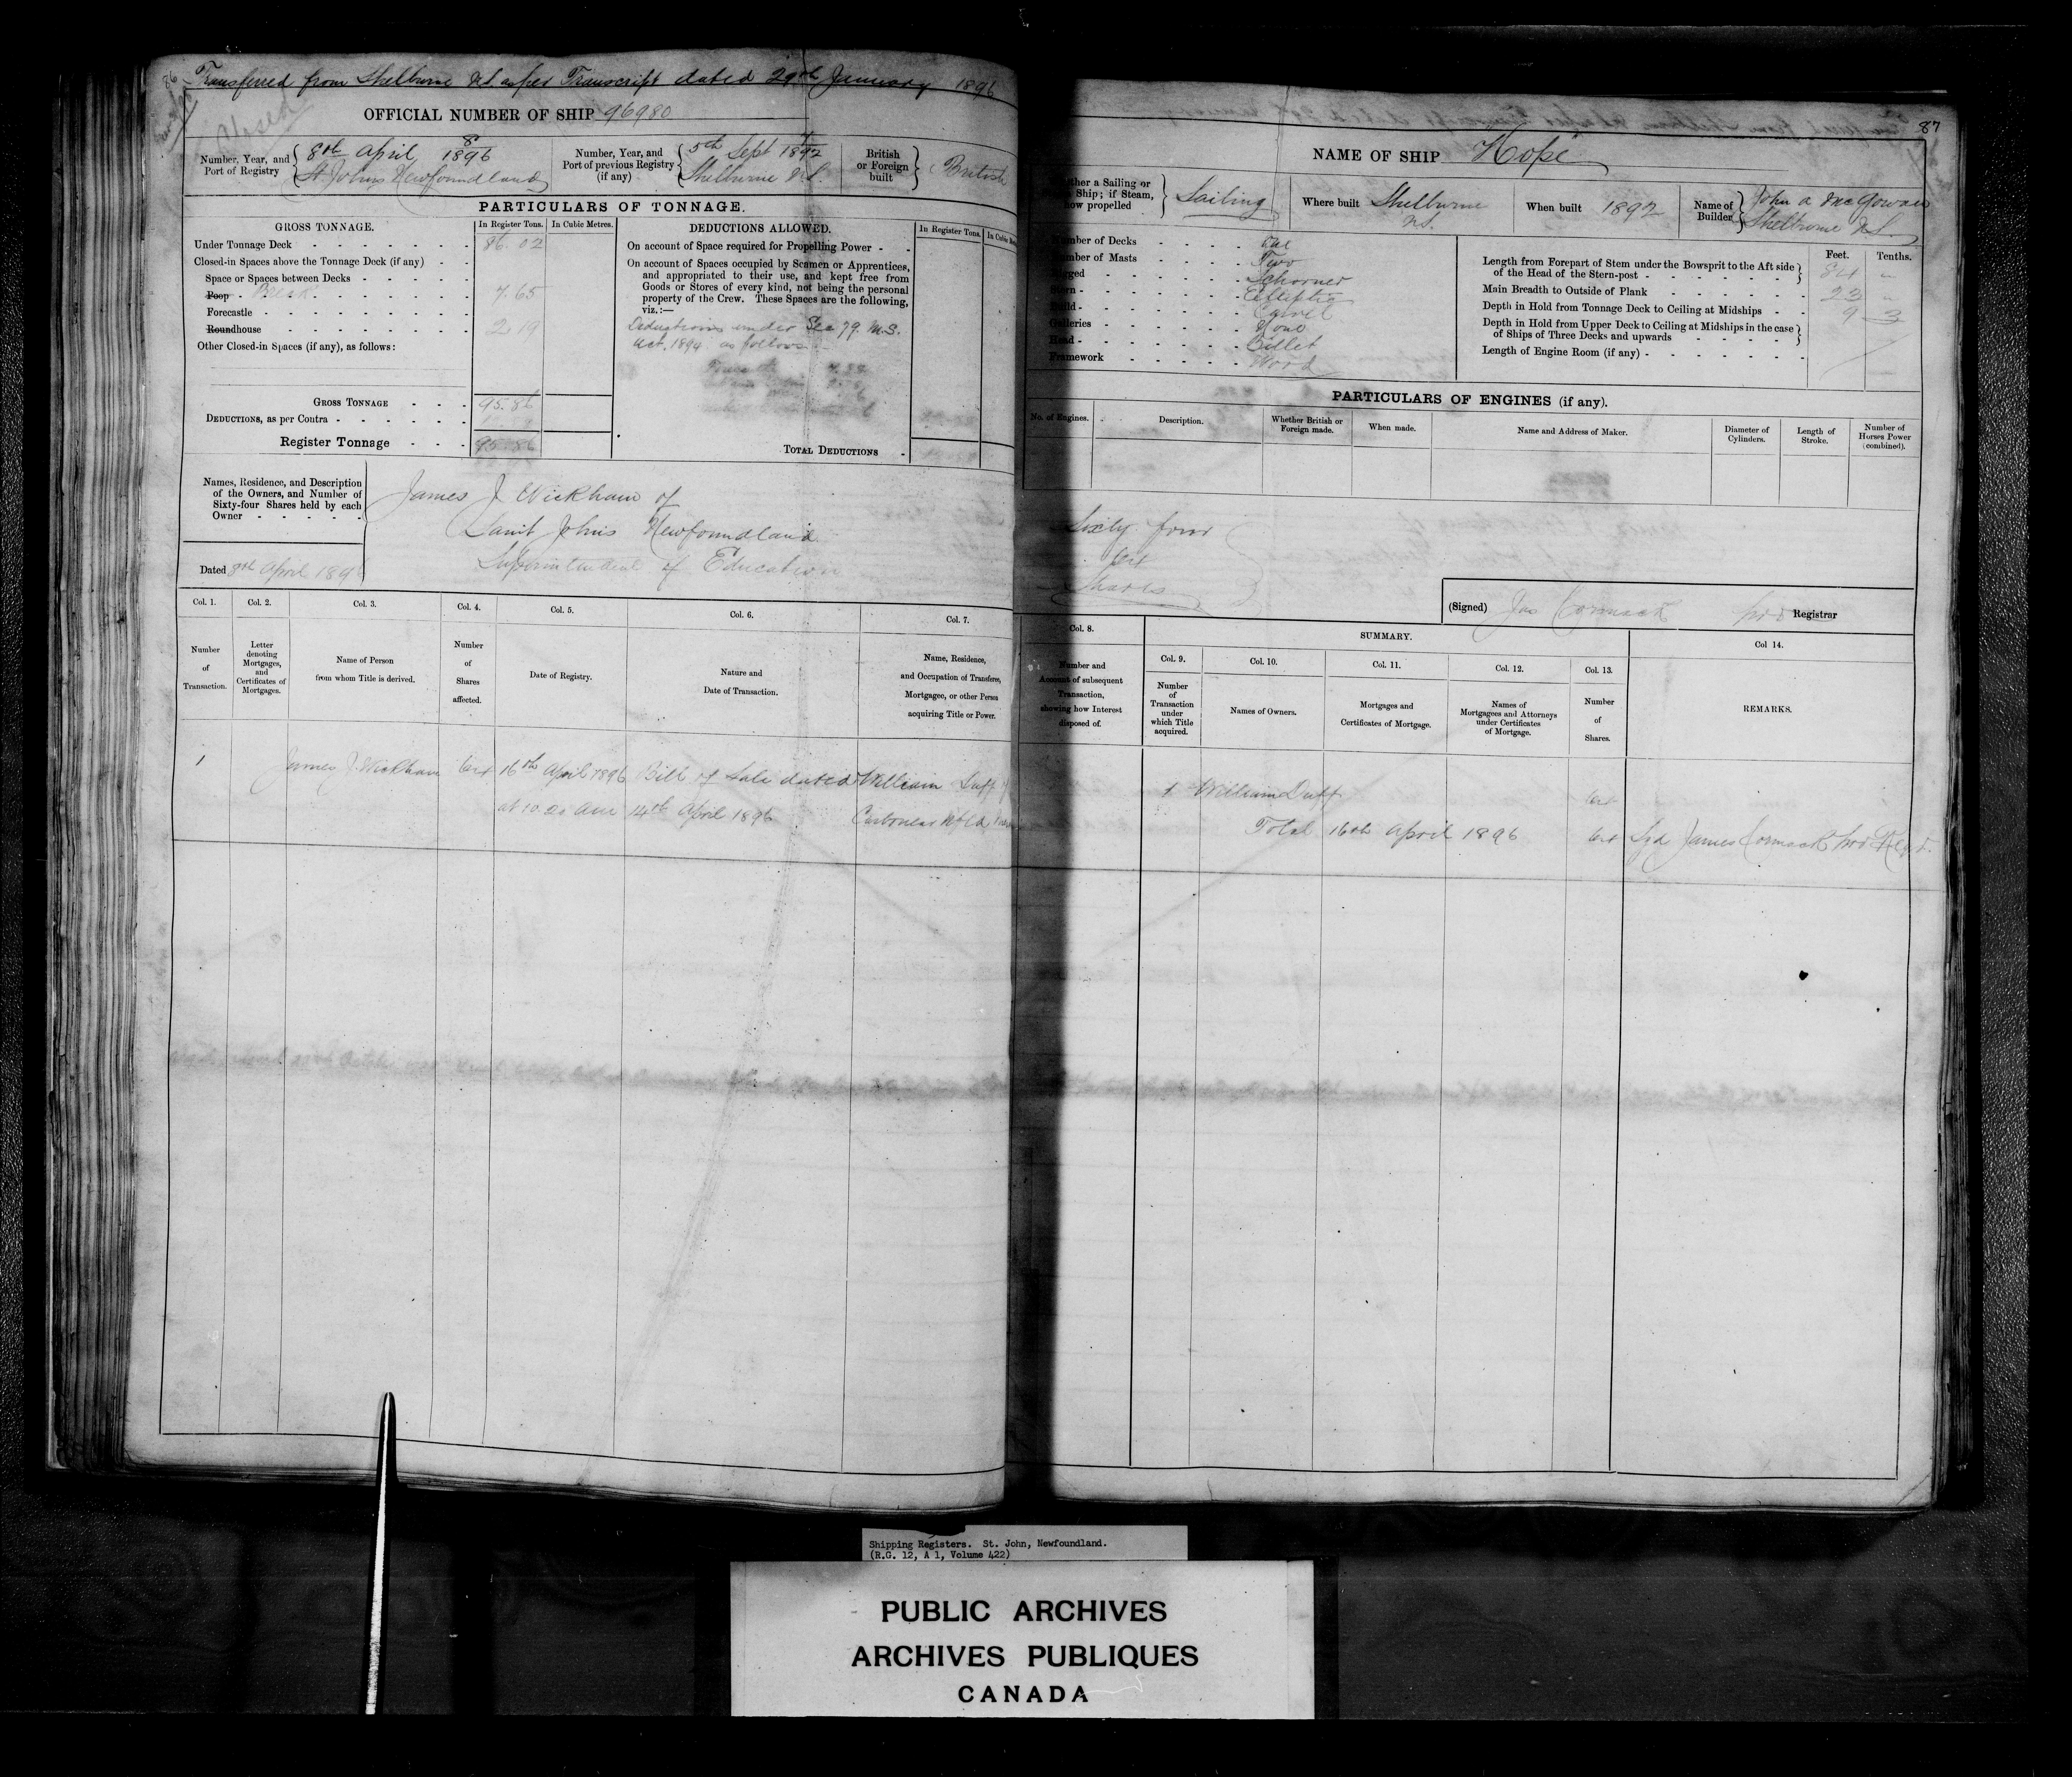 86
Transferred from Shelburne N.S. as per Transcript dated 29th January 1896
OFFICIAL NUMBER OF SHIP 96980
Number, Year, and Port of Registry
8th April 8/1896
St. Johns Newfoundland
Number, Year, and Port of previous Registry (if any)
5th Sept 1892
Shelburne N.S.
British or Foreign built
British
PARTICULARS OF TONNAGE.
GROSS TONNAGE.
In Register Tons.
In Cubic Metres.
Under Tonnage Deck 86.02
Closed-in Spaces above the Tonnage Deck (if any)
Space or Spaces between Decks
Poop Break 7.65
Forecastle
Roundhouse 2.19
Other Closed-in Spaces (if any), as follows:
GROSS TONNAGE 95.86
DEDUCTIONS, as per Contra
Register Tonnage 95.86
DEDUCTIONS ALLOWED.
In Register Tons.
On account of Space required for Propelling Power
On account of Spaces occupied by Seamen or Apprentices,
and appropriated to their use, and kept free from
Goods or Stores of every kind, not being the personal
property of the Crew. These Spaces are the following,
viz.:—
Deductions under Sec 79. M.S.
Act. 1894 as follows
TOTAL DEDUCTIONS
Names, Residence, and Description
of the Owners, and Number of
Sixty-four Shares held by each
Owner
James J Wickham of
Saint Johns Newfoundland
Superintendent of Education
Dated 8th April 1896
Col. 1.
Number
of
Transaction.
Col. 2.
Letter
denoting
Mortgages,
and
Certificates of
Mortgages.
Col. 3.
Name of Person
from whom Title is derived.
Col. 4.
Number
of
Shares
affected.
Col. 5.
Date of Registry.
Col. 6.
Nature and
Date of Transaction.
Col. 7.
Name, Residence,
and Occupation of Transferee,
Mortgagee, or other Person
acquiring Title or Power.
1 James J. Wickham 64 16th April 1896 Bill of Sale dated William Duff of
at 10.20 am 14th April 1896 Carbonear Nfld
87
NAME OF SHIP "Hope"
Whether a Sailing or
Ship; if Steam,
how propelled
Sailing
Where built Shelburne
N.S.
When built 1892
Name of Builder
John A McGowan
Shelburne N.S.
Number of Decks One
Number of Masts Two
Rigged Schooner
Stern Elliptic
Build Carvel
Galleries None
Head Billet
Framework Wood
Feet. Tenths.
Length from Forepart of Stem under the Bowsprit to the Aft side
of the Head of the Stern-post 84 "
Main Breadth to Outside of Plank 23 "
Depth in Hold from Tonnage Deck to Ceiling at Midships 9 3
Depth in Hold from Upper Deck to Ceiling at Midships in the case
of Ships of Three Decks and upwards
Length of Engine Room (if any)
PARTICULARS OF ENGINES (if any).
No. of Engines.
Description.
Whether British or
Foreign made.
When made.
Name and Address of Maker.
Diameter of
Cylinders.
Length of
Stroke.
Number of
Horses Power
(combined).
Sixty four
64
Shares
(Signed) Jas Cormack pro Registrar
Col. 8.
Number and
Account of subsequent
Transaction,
showing how Interest
disposed of.
SUMMARY.
Col. 9.
Number
of
Transaction
under
which Title
acquired.
Col. 10.
Names of Owners.
Col. 11.
Mortgages and
Certificates of Mortgage.
Col. 12.
Names of
Mortgagees and Attorneys
under Certificates
of Mortgage.
Col. 13.
Number
of
Shares.
Col 14.
REMARKS.
1 William Duff 64
Total 16th April 1896 64 Sgd James Cormack pro Regr.
Shipping Registers. St. John, Newfoundland.
(R.G. 12, A 1, Volume 422)
PUBLIC ARCHIVES
ARCHIVES PUBLIQUES
CANADA